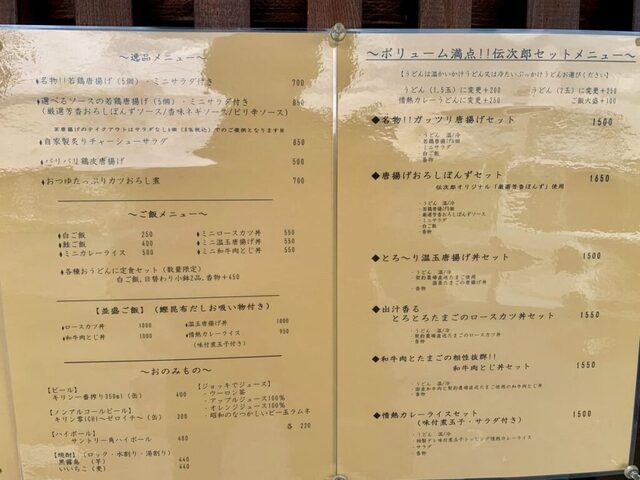 ～逸品メニュー～
♦名物!!若鶏唐揚げ(5個)・ミニサラダ付き 700
♦選べるソースの若鶏唐揚げ(5個)・ミニサラダ付き 850
(厳選芳香おろしぽんずソース/香味ネギソース/ピリ辛ソース)
♦自家製炙りチャーシューサラダ 850
♦パリパリ鶏皮唐揚げ 500
♦おつゆたっぷりカツおろし煮 700
～ご飯メニュー～
♦白ご飯 250
♦鮭ご飯 400
♦ミニカレーライス 500
♦ミニロースカツ丼 550
♦ミニ温玉唐揚げ丼 550
♦ミニ和牛肉とじ丼 550
♦各種おうどんに定食セット(数量限定)
白ご飯,日替わり小鉢2品,香物+450
【並盛ご飯】(鰹昆布だしお吸い物付き)
♦ロースカツ丼 1000
♦和牛肉とじ丼 1000
♦温玉唐揚げ丼 1000
♦情熱カレーライス 950
(味付煮玉子付き)
～おのみもの～
【ビール】
キリン一番搾り350ml(缶) 400
【ノンアルコールビール】
キリン零(CHI)～ゼロイチ～(缶) 300
【ハイボール】
サントリー角ハイボール 480
【焼酎】(ロック・水割り・湯割り)
黒霧島 (芋) 440
いいちこ(麦) 440
【ジョッキでジュース】
・ウーロン茶
・アップルジュース100%
・オレンジジュース100%
・昭和のなつかしいビー玉ラムネ
各 220
～ボリューム満点!!伝次郎セットメニュー～
【うどんは温かいかけうどん又は冷たいぶっかけうどんお選びください】
うどん(1.5玉)に変更+200 うどん(2玉)に変更+250
情熱カレーうどんに変更+250 ご飯大盛+100
◆名物!!ガッツリ唐揚げセット 1500
・うどん 温/冷
・若鶏唐揚げ5個
・ミニサラダ
・白ご飯
・香物
◆唐揚げおろしぽんずセット 1650
伝次郎オリジナル「厳選芳香ぽんず」使用
・うどん 温/冷
・若鶏唐揚げ5個
・厳選芳香おろしぽんずソース
・ミニサラダ
・白ご飯
・香物
◆とろ～り温玉唐揚げ丼セット 1500
・うどん 温/冷
・契約農場直送たまご使用
温泉たまごの唐揚げ丼
・香物
◆出汁香る
とろとろたまごのロースカツ丼セット 1550
・うどん 温/冷
・契約農場直送たまごのロースカツ丼
・香物
◆和牛肉とたまごの相性抜群!!
和牛肉とじ丼セット 1550
・うどん 温/冷
・国産和牛肉と契約農場直送たまご使用の和牛肉とじ丼
・香物
◆情熱カレーライスセット 1500
(味付煮玉子・サラダ付き)
・うどん 温/冷
・特製ダレ味付煮玉子トッピング情熱カレーライス
・サラダ
・香物